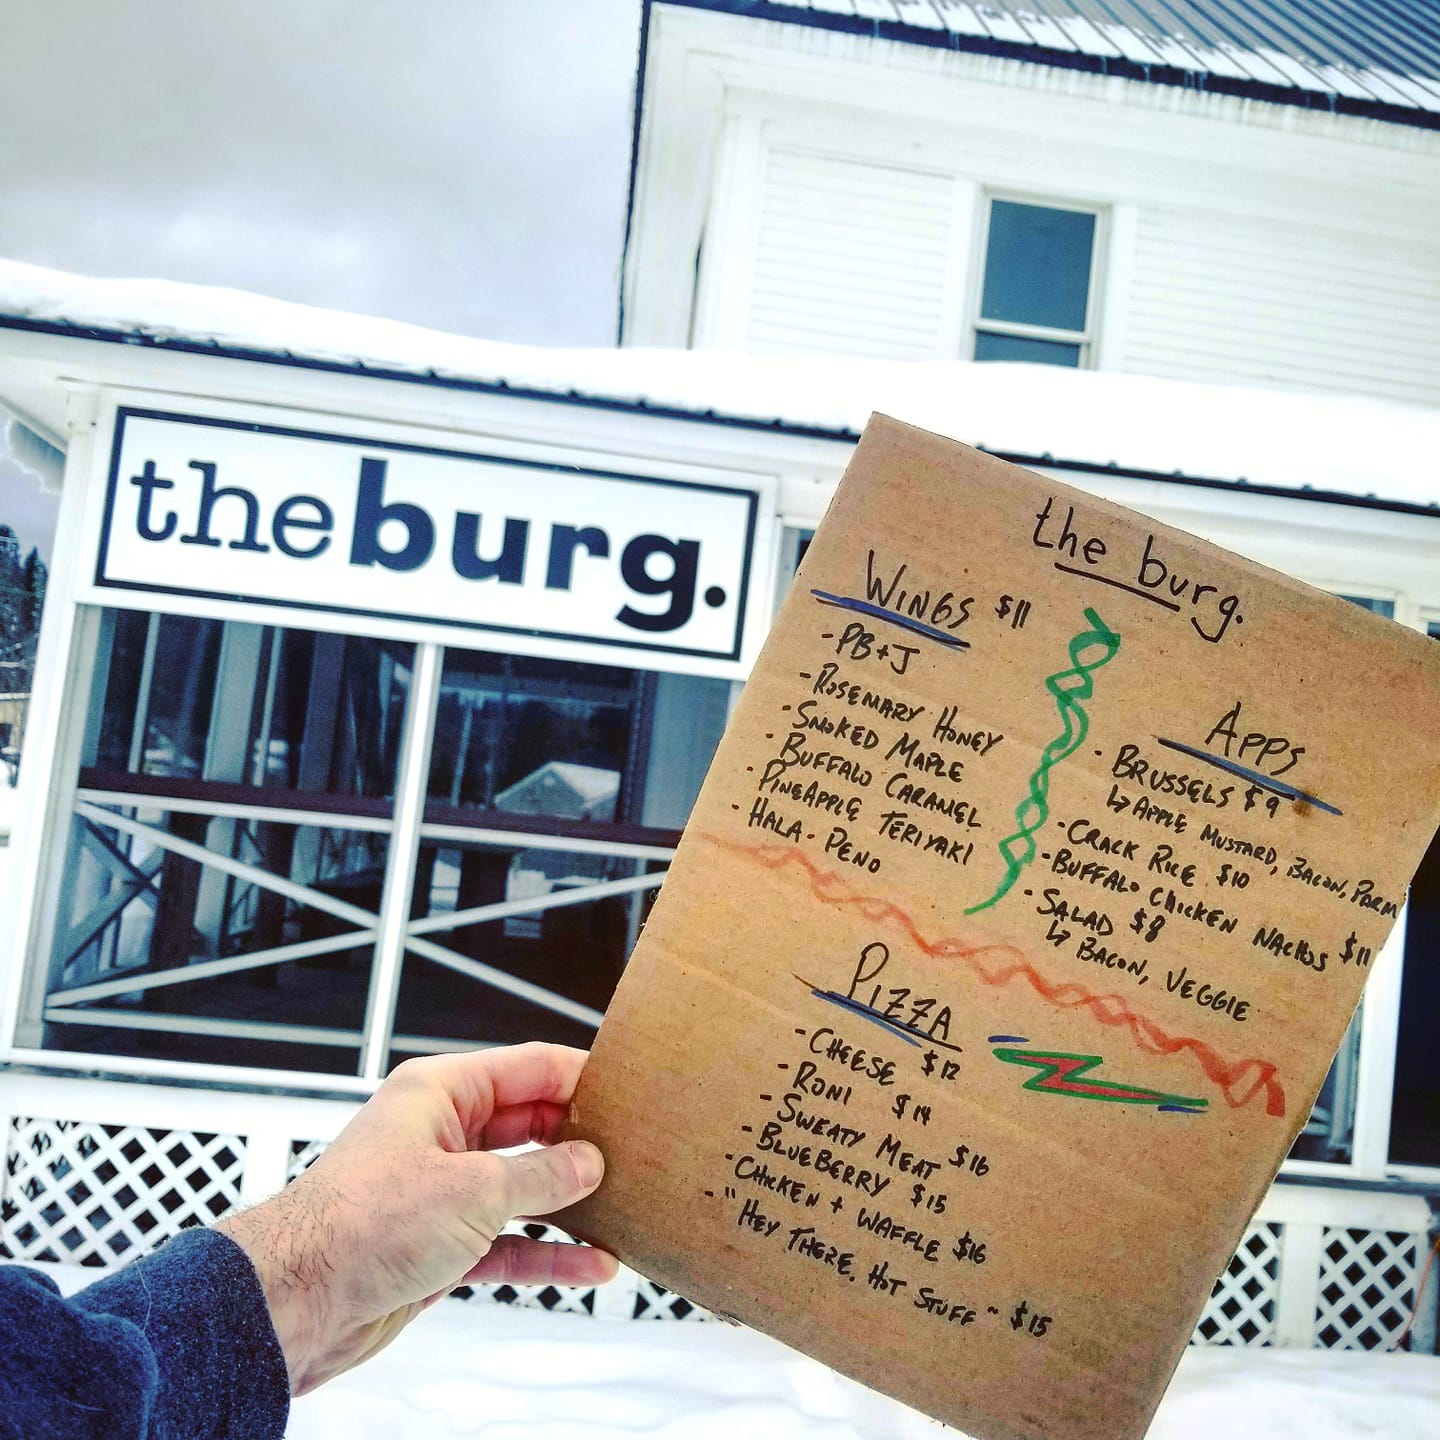 theburg.
the burg.
WINGS $11
- PB+J
- ROSEMARY HONEY
- SMOKED MAPLE
- BUFFALO CARAMEL
- PINEAPPLE TERIYAKI
- HALA-PENO
APPS
- BRUSSELS $9
↳ APPLE MUSTARD, BACON, PARM
- CRACK RICE $10
- BUFFALO CHICKEN NACHOS $11
- SALAD $8
↳ BACON, VEGGIE
PIZZA
- CHEESE $12
- RONI $14
- SWEATY MEAT $16
- BLUEBERRY $15
- CHICKEN + WAFFLE $16
- "HEY THERE, HOT STUFF" $15